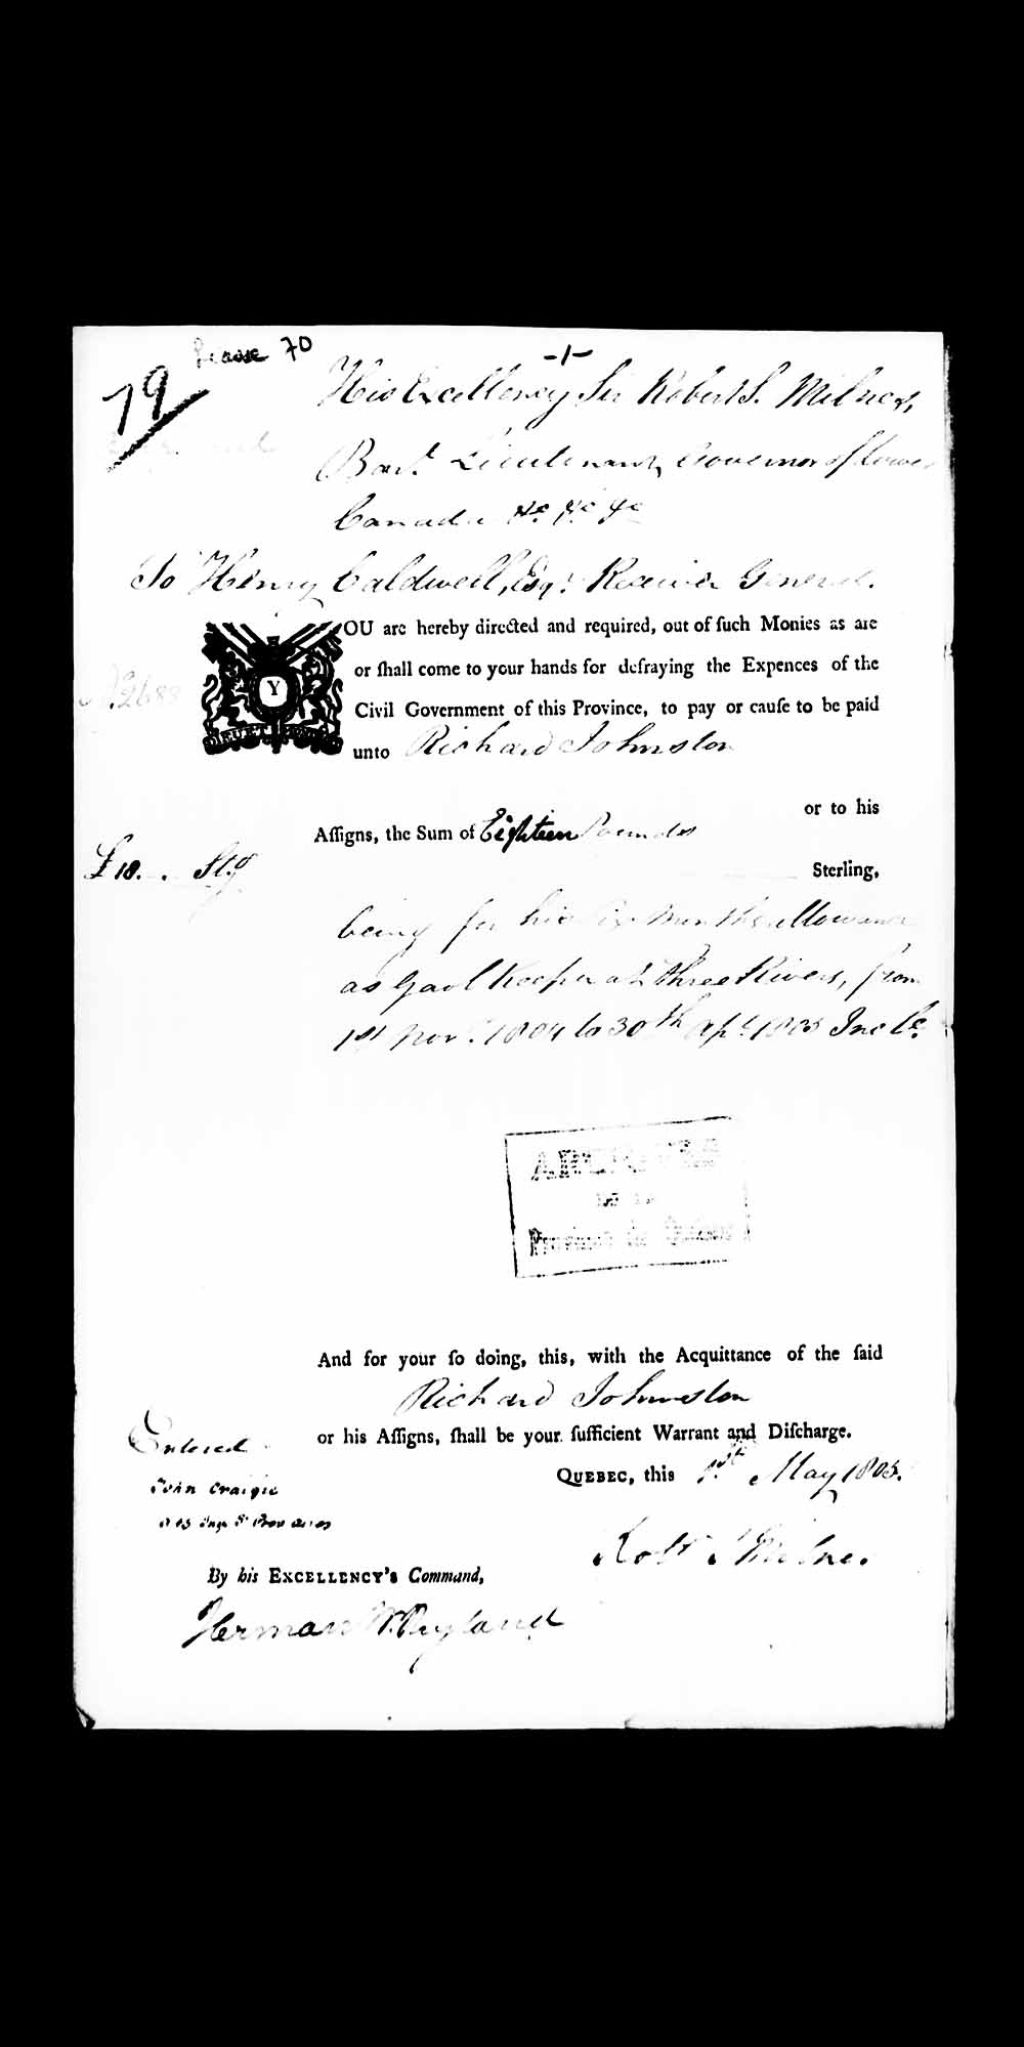 70
-1-
79
His Excellency Sir Robert S. Milnes,
Bart. Lieutenant Governor of Lower
Canada &c. &c &c
To Henry Caldwell, Esqr. Receiver General.
YOU are hereby directed and required, out of ſuch Monies as are
or ſhall come to your hands for defraying the Expences of the
No. 2688
Civil Government of this Province, to pay or cauſe to be paid
unto Richard Johnston
or to his
Aſſigns, the Sum of Eighteen Pounds
£18. . Stg
Sterling,
being for his Six Months allowance
as Gaol Keeper at Three Rivers, from
1st Novr. 1804 to 30th Apl. 1805 Incle.
ARCHIVES
de la
Province de Québec
And for your ſo doing, this, with the Acquittance of the ſaid
Richard Johnston
or his Aſſigns, ſhall be your ſufficient Warrant and Diſcharge.
Entered
QUEBEC, this 1st May 1805.
John Craigie
Robt S Milnes.
By his EXCELLENCY's Command,
Herman W. Ryland